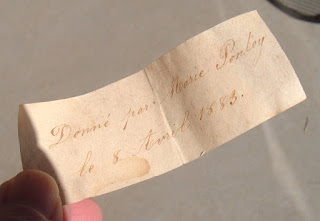 Donné par Marie Ponloy
le 8 Avril 1883.